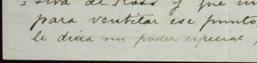 siva de Rosas y que un
para ventilar ese punto
le diera un poder especial,